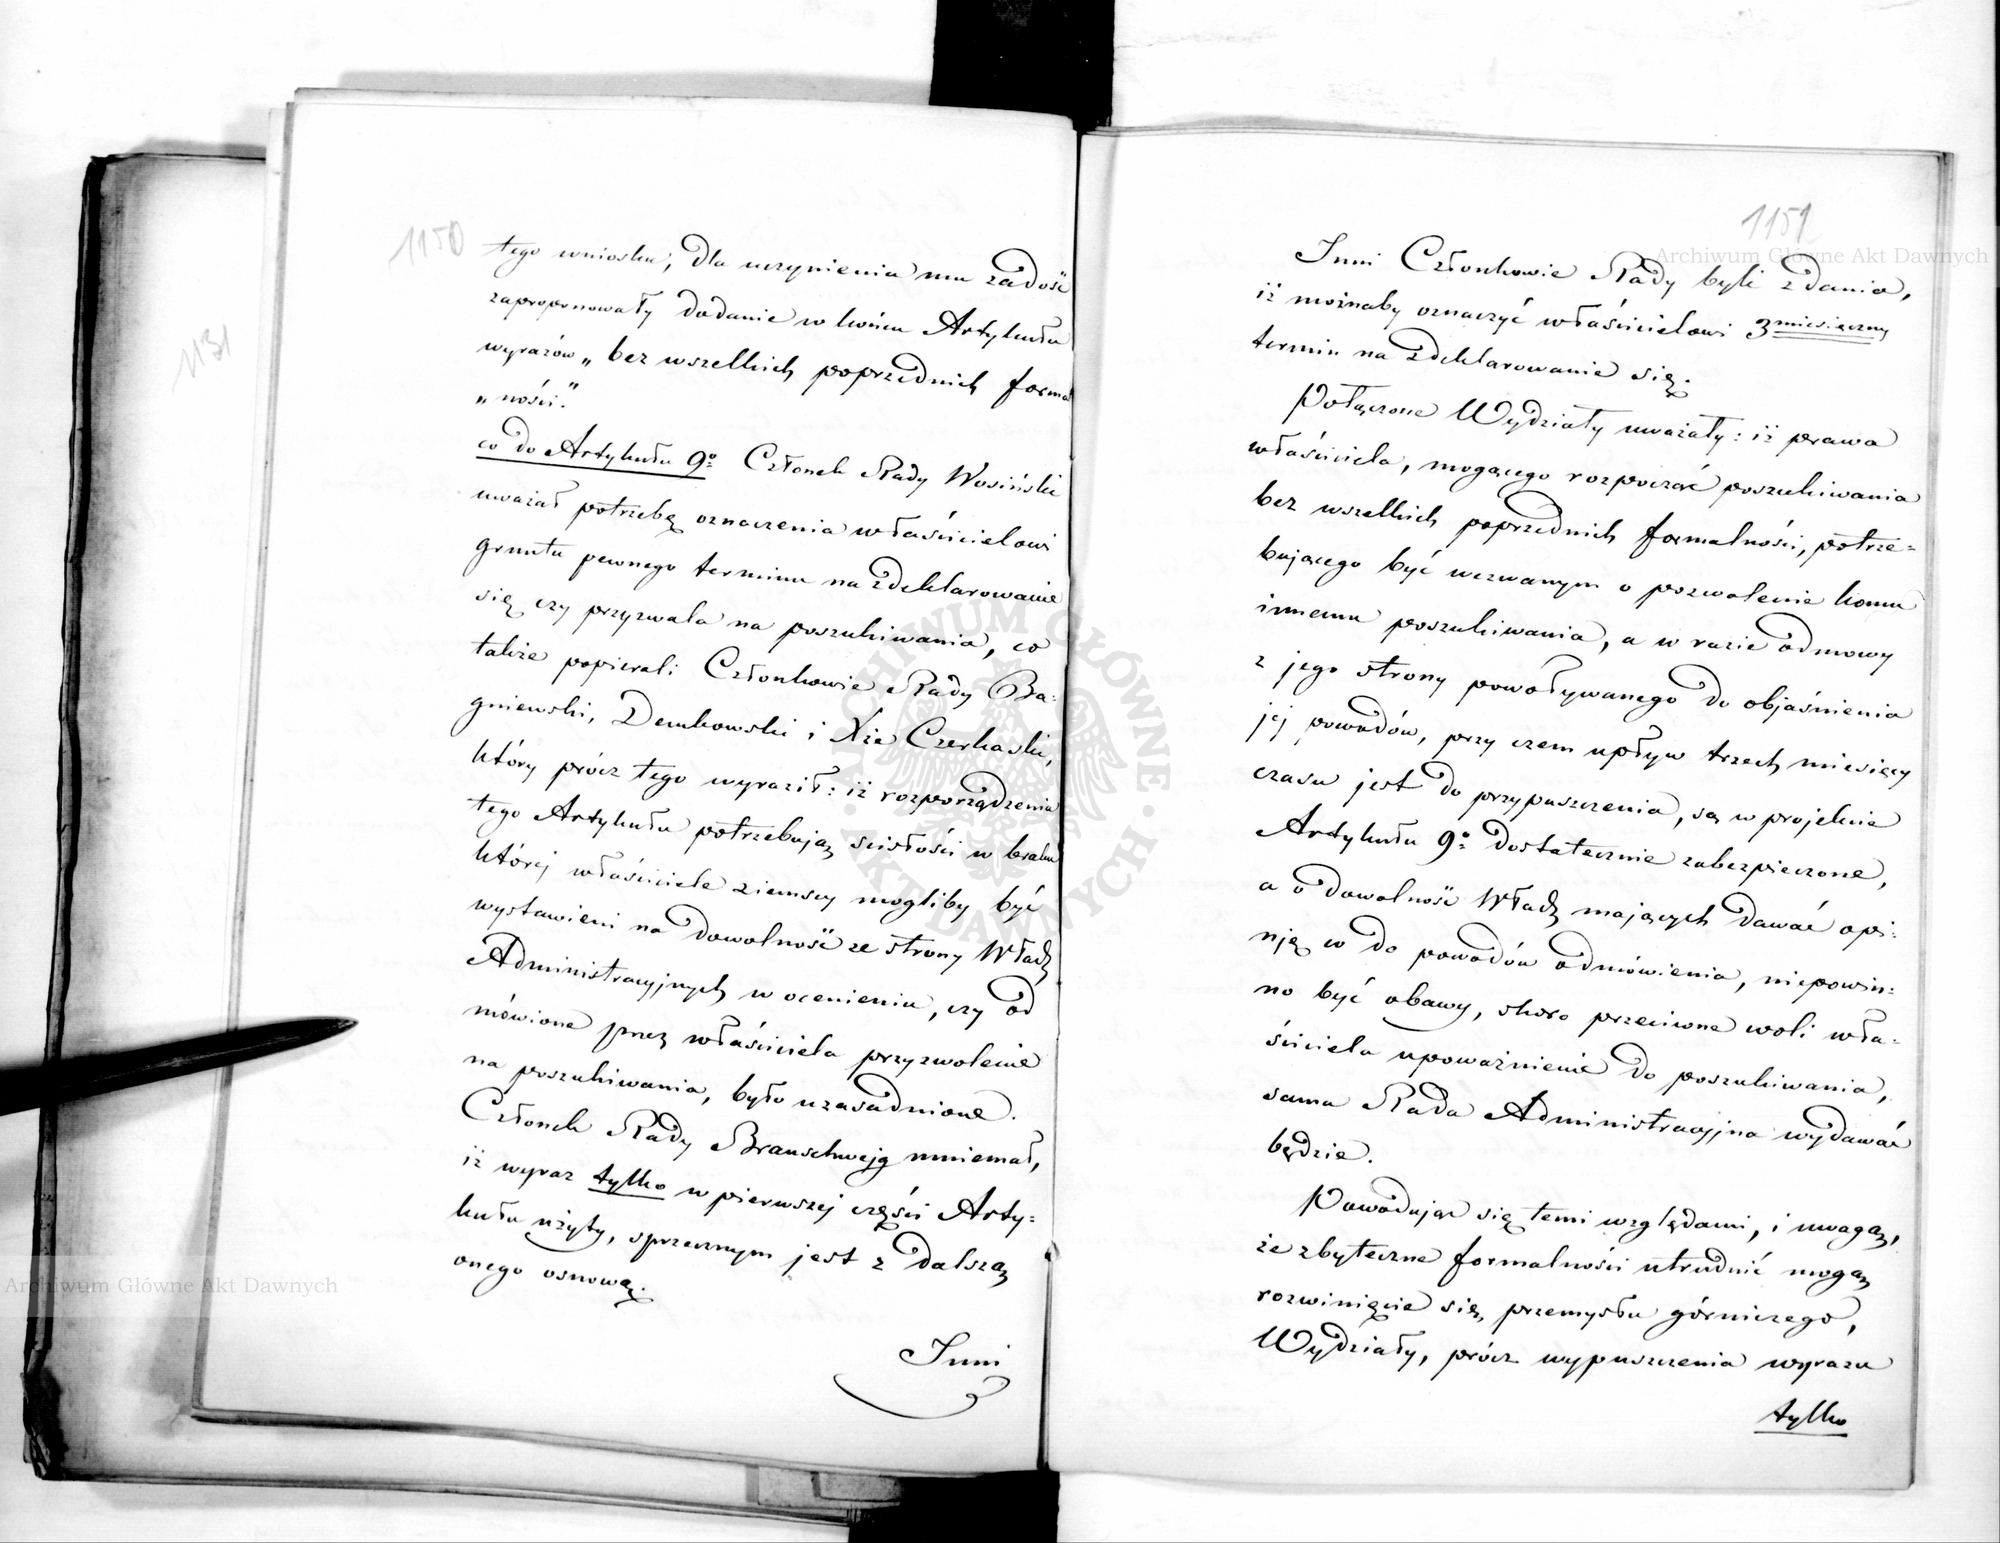 1150
tego wniosku, dla uczynienia mu zadość
zaproponowały dodanie w końcu Artykułu
wyrazów „ bez wszelkich poprzednich formal
„ ności."
co do Artykułu 9º Członek Rady Wosiński
uważał potrzebę oznaczenia właścicielowi
gruntu pewnego terminu na zdeklarowanie
się czy przyzwala na poszukiwania, co
także popierali Członkowie Rady Ba-
gniewski, Dembowski i Xże Czerkaski,
który prócz tego wyraził: iż rozporządzenia
tego Artykułu potrzebują ścisłości w braku
której właściciele ziemscy mogliby być
wystawieni na dowolność ze strony Władz
Administracyjnych w ocenieniu, czy od
mówione przez właściciela przyzwolenie
na poszukiwania, było uzasadnione.
Członek Rady Brauschwejg mniemał,
iż wyraz tylko w pierwszej części Arty-
kułu użyty, sprzecznym jest z dalszą
onego osnową.
Inni
1131
1151
Inni Członkowie Rady byli zdania,
iż możnaby oznaczyć właścicielowi 3miesięczny
termin na zdeklarowanie się.
Połączone Wydziały uważały: iż prawa
właściciela, mogącego rozpocząć poszukiwania
bez wszelkich poprzednich formalności, potrze-
bującego być wezwanym o pozwolenie komu
innemu poszukiwania, a w razie odmowy
z jego strony powoływanego do objaśnienia
jej powodów, przy czem upływ trzech miesięcy
czasu jest do przypuszczenia, są w projekcie
Artykułu 9º dostatecznie zabezpieczone,
a o dowolność Władz mających dawać opi-
nję co do powodów odmówienia, niepowin-
no być obawy, skoro przeciwne woli wła-
ściciela upoważnienie do poszukiwania,
sama Rada Administracyjna wydawać
będzie.
Powodując się temi względami, i uwagą,
że zbyteczne formalności utrudnić mogą
rozwinięcie się przemysłu górniczego,
Wydziały, prócz wypuszczenia wyrazu
tylko
Archiwum Główne Akt Dawnych
Archiwum Główne Akt Dawnych
ARCHIWUM GŁÓWNE AKT DAWNYCH